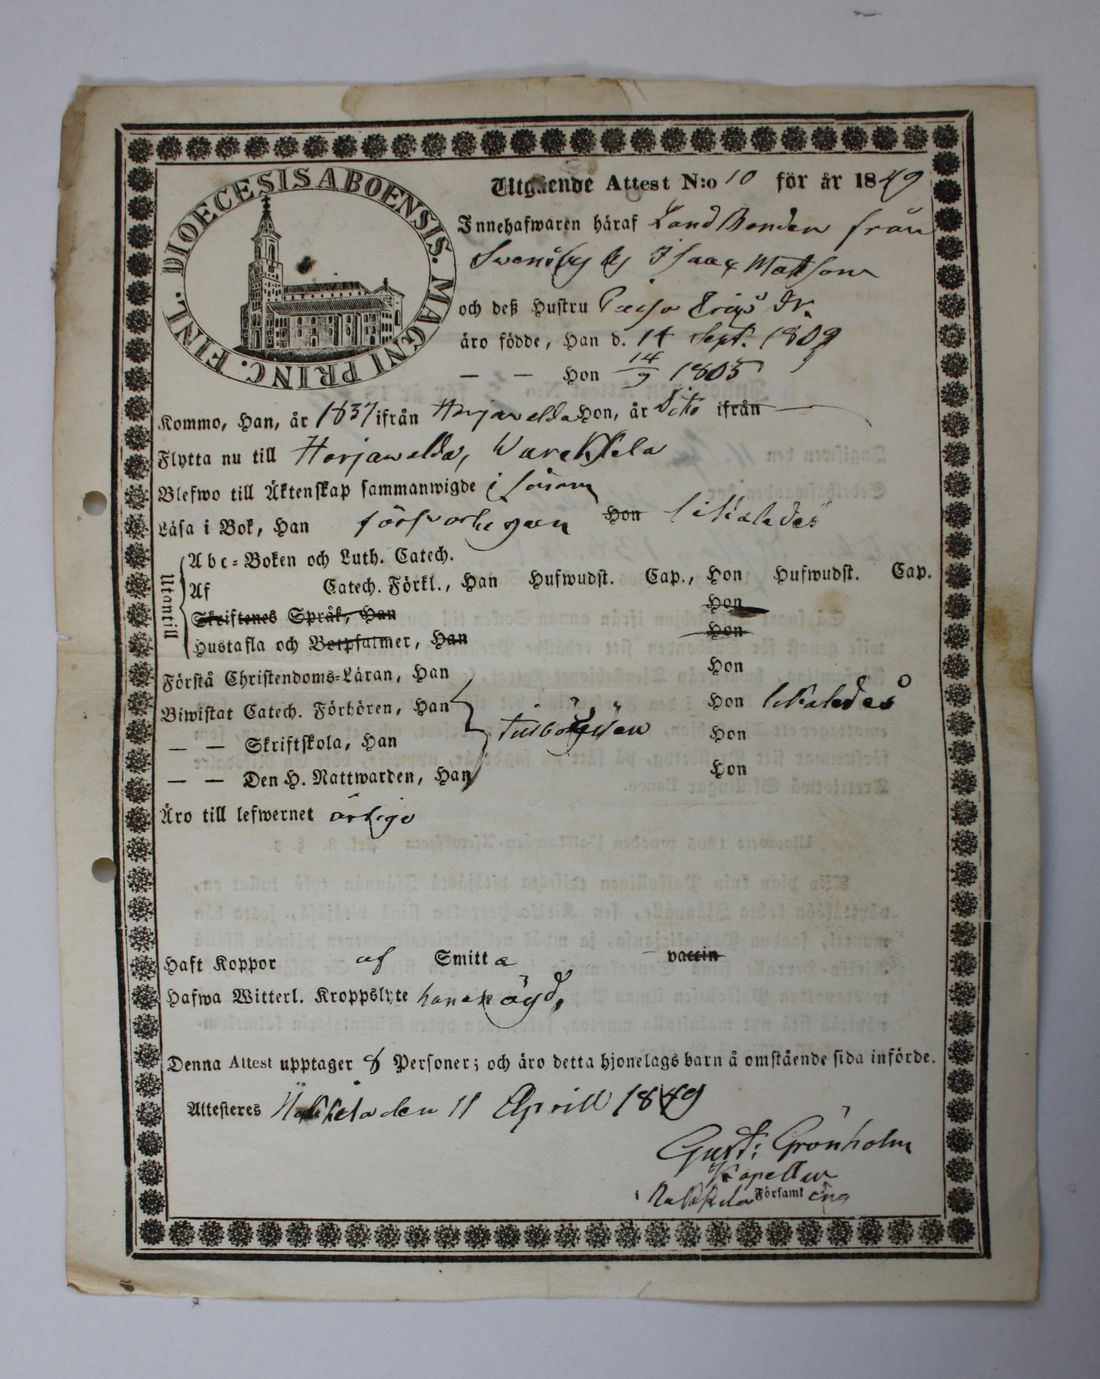 DIOECESIS ABOENSIS. MAGNI PRINC. FINL.
Utgående Attest N:o 10 för år 1849
Innehafwaren häraf Land Bonden från
Swensby by Isaac Matsson
och deß Hustru Caisa Erics Dr.
äro födde, Han d. 14 Sept. 1809
— — Hon 14/9 1805
Kommo, Han, år 1837 ifrån Harjawalda Hon, år dito ifrån —
Flytta nu till Harjawalda,
Blefwo till Äktenskap sammanwigde i
Läsa i Bok, Han försvarligen Hon likaledes
Utantill
Abc-Boken och Luth. Catech.
Af Catech. Förkl., Han Hufwudst. Cap., Hon Hufwudst. Cap.
Skriftenes Språk, Han Hon
Hustafla och Botpsalmer, Han Hon
Förstå Christendoms-Läran, Han Hon
Biwistat Catech. Förhören, Han Hon likaledes
— — Skriftskola, Han tillbörligen Hon
— — Den H. Nattwarden, Han Hon
Äro till lefwernet ärliga
Haft Koppor af Smitta vaccin
Hafwa Witterl. Kroppslyte
Denna Attest upptager 8 Personer; och äro detta hjonelags barn å omstående sida införde.
Attesteres Nakkila den 11 Aprill 1849
Gust: Grönholm
Kapellan
i Nakkila Församling